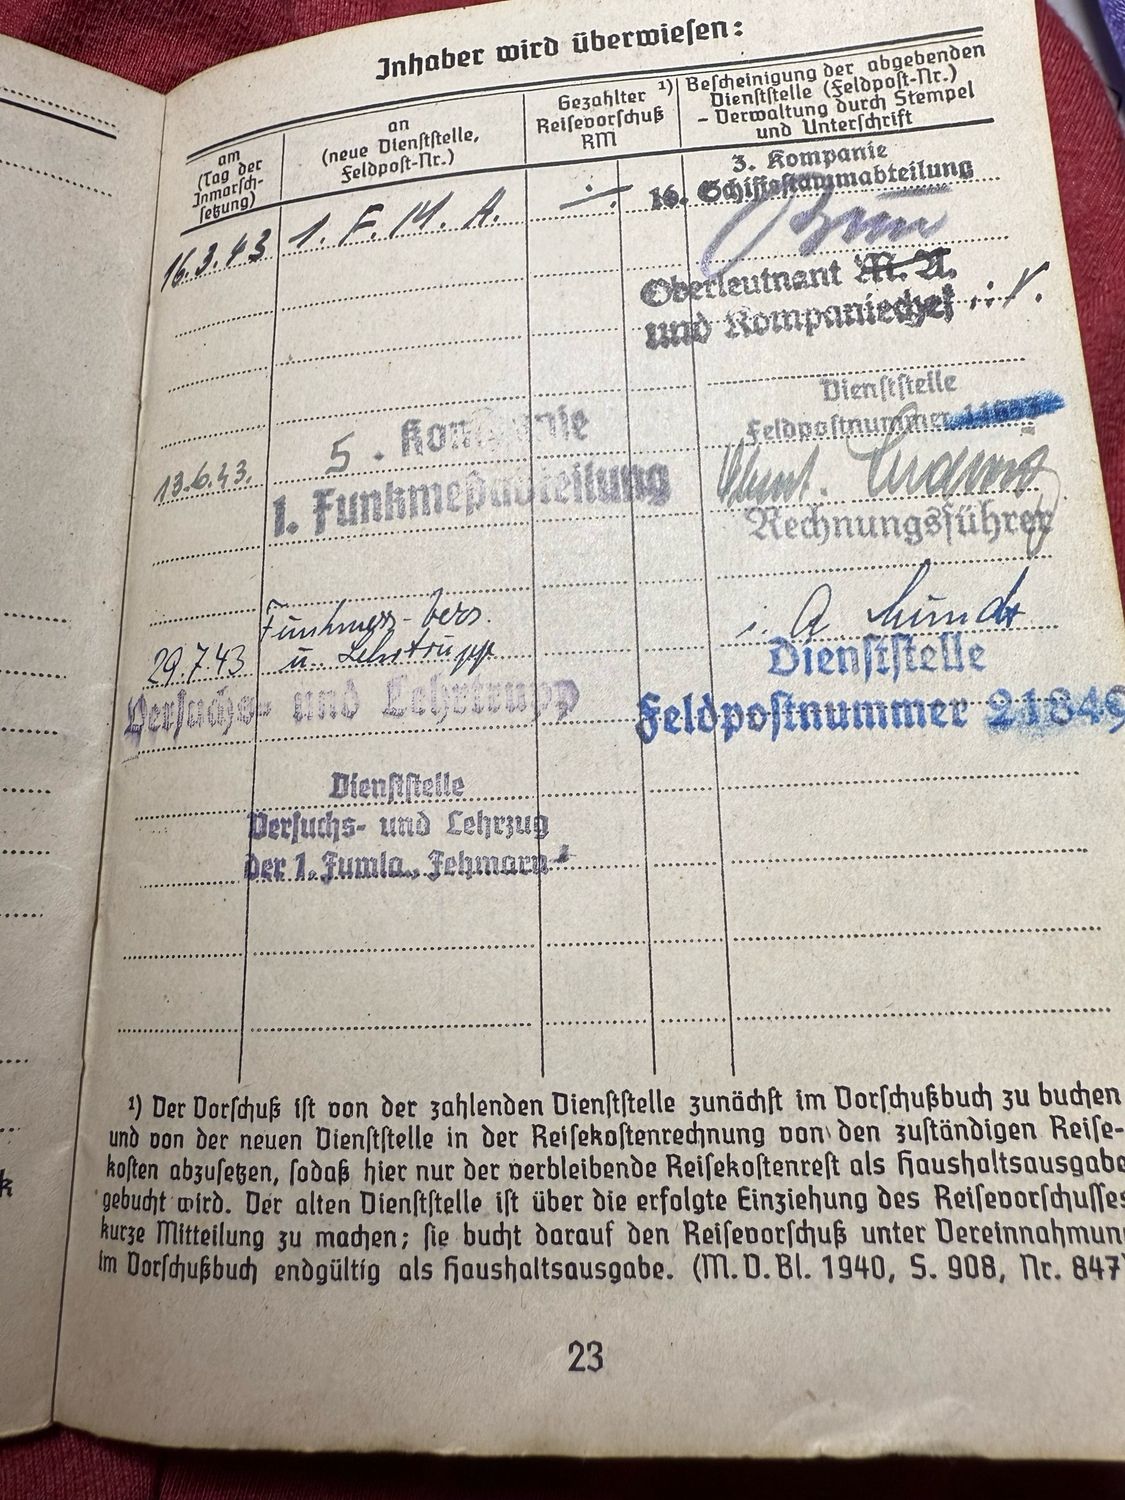 Inhaber wird überwiesen:
am
(Tag der
Inmarsch-
setzung)
an
(neue Dienststelle,
Feldpost-Nr.)
Gezahlter ¹)
Reisevorschuß
RM
Bescheinigung der abgebenden
Dienststelle (Feldpost-Nr.)
- Verwaltung durch Stempel
und Unterschrift
16.3.43
1. F. M. A.
3. Kompanie
16. Schiffsstammabteilung
Oberleutnant M. A.
und Kompaniechef
13.6.43.
5. Kompanie
1. Funkmeßabteilung
Dienststelle
Feldpostnummer
Rechnungsführer
29.7.43
Funkmess-Vers.
u. Lehrtrupp
Versuchs- und Lehrtrupp
i. A.
Dienststelle
Feldpostnummer 21849
Dienststelle
Versuchs- und Lehrzug
der 1. Fumla., Fehmarn
¹) Der Vorschuß ist von der zahlenden Dienststelle zunächst im Vorschußbuch zu buchen
und von der neuen Dienststelle in der Reisekostenrechnung von den zuständigen Reise-
kosten abzusetzen, sodaß hier nur der verbleibende Reisekostenrest als Haushaltsausgabe
gebucht wird. Der alten Dienststelle ist über die erfolgte Einziehung des Reisevorschusses
kurze Mitteilung zu machen; sie bucht darauf den Reisevorschuß unter Vereinnahmun
im Vorschußbuch endgültig als Haushaltsausgabe. (M. D. Bl. 1940, S. 908, Nr. 847)
23